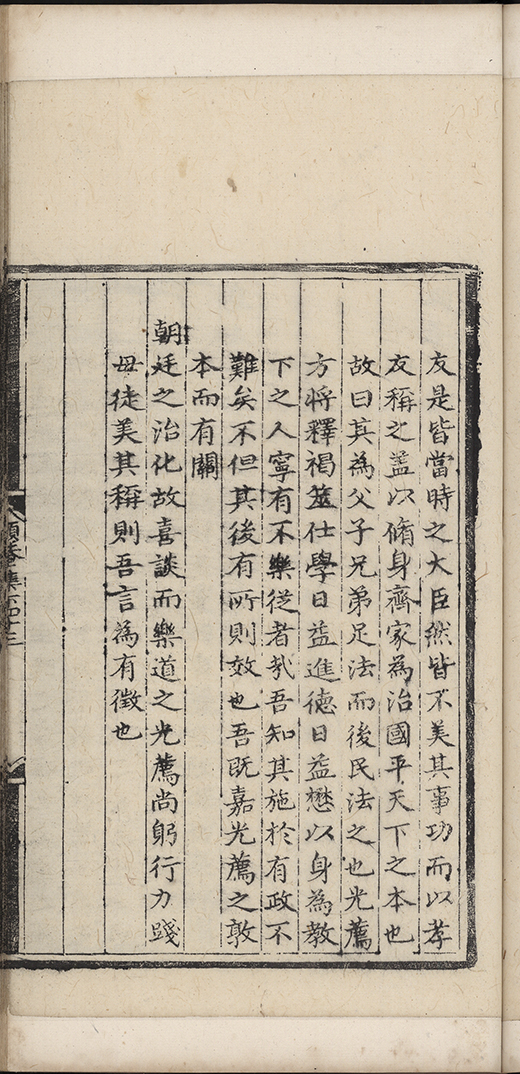 友是皆當時之大臣然皆不美其事功而以孝
友稱之盖以脩身齊家為治國平天下之本也
故曰其為父子兄弟足法而後民法之也光薦
方將釋褐筮仕學日益進德日益懋以身為教
下之人寧有不樂從者㢤吾知其施於有政不
難矣不但其後有所則效也吾既嘉光薦之敦
本而有關
朝廷之治化故喜談而樂道之光薦尚躬行力踐
毋徒美其稱則吾言為有徵也
頤菴集六四十三